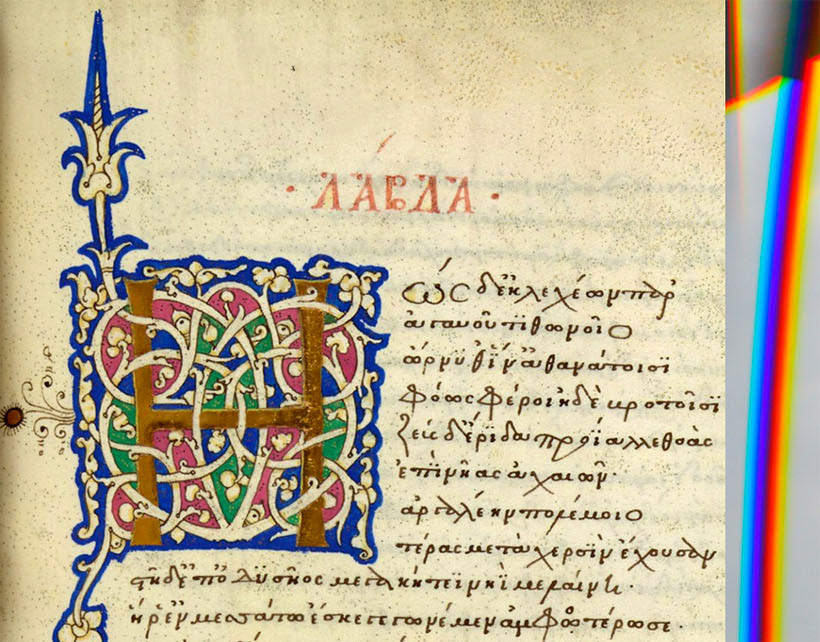 · ΛΆΒΔΑ ·
Ηὼς δ' ἐκ λεχέων παρ'
ἀγαυοῦ τιθωνοῖο
ὤρνυθ' ἵν' ἀθανάτοισι
φόως φέροι ἠδὲ βροτοῖσι
ζεὺς δ' ἔριδα προΐαλλε θοὰς
ἐπὶ νῆας ἀχαιῶν·
ἀργαλέην πολέμοιο
τέρας μετὰ χερσὶν ἔχουσαν
στῆ δ' ἐπ' ὀδυσῆος μεγακήτεϊ νηῒ μελαίνῃ·
ἥ ῥ' ἐν μεσάτω ἔσκε γεγωνέμεν ἀμφοτέρωσε·